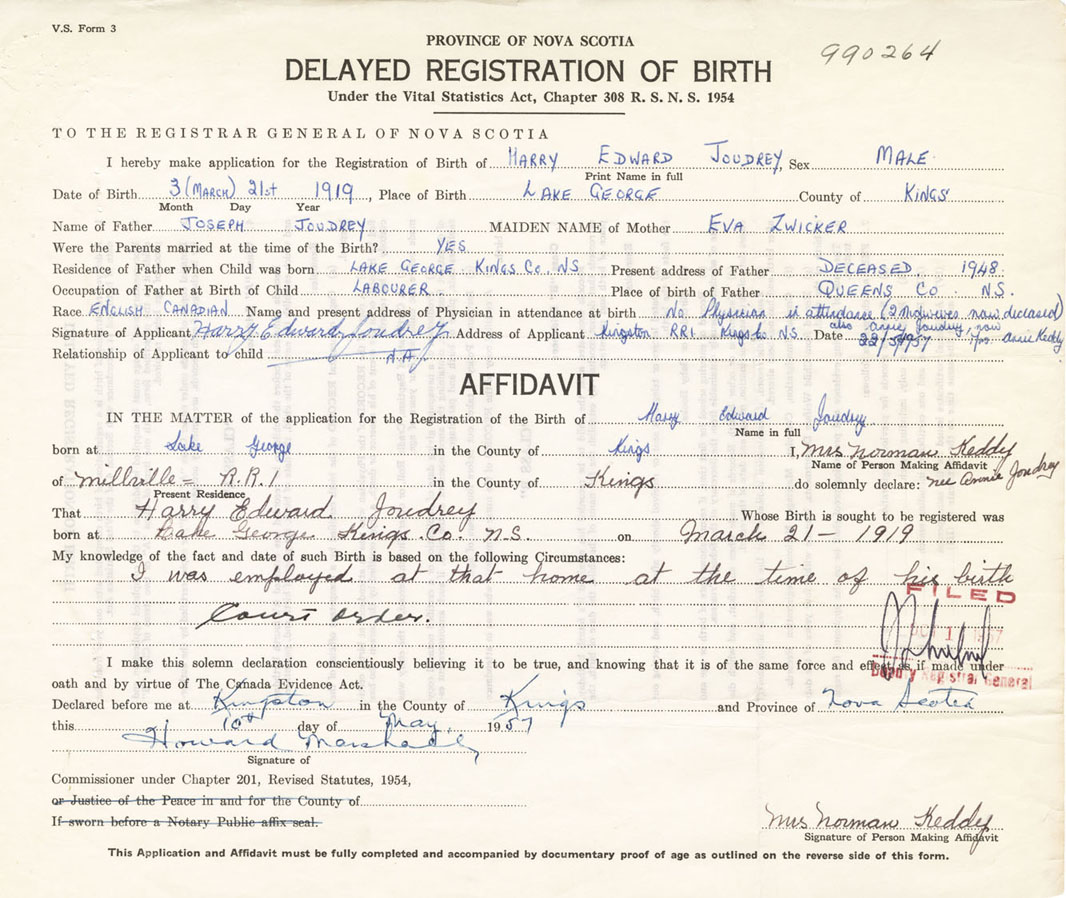 V.S. Form 3
990264
PROVINCE OF NOVA SCOTIA
DELAYED REGISTRATION OF BIRTH
Under the Vital Statistics Act, Chapter 308 R. S. N. S. 1954
TO THE REGISTRAR GENERAL OF NOVA SCOTIA
I hereby make application for the Registration of Birth of HARRY EDWARD JOUDREY, Sex MALE
Print Name in full
Date of Birth 3 (MARCH) 21st 1919, Place of Birth LAKE GEORGE County of KINGS
Month Day Year
Name of Father JOSEPH JOUDREY MAIDEN NAME of Mother EVA ZWICKER
Were the Parents married at the time of the Birth? YES
Residence of Father when Child was born LAKE GEORGE KINGS Co. NS Present address of Father DECEASED 1948.
Occupation of Father at Birth of Child LABOURER Place of birth of Father QUEENS CO. NS.
Race ENGLISH CANADIAN Name and present address of Physician in attendance at birth No Physician in attendance (2 Midwives now deceased)
also Annie Joudrey, now Mrs Annie Keddy
Signature of Applicant Harry Edward Joudrey Address of Applicant Kingston RR1 Kings Co NS Date
Relationship of Applicant to child N.A.
AFFIDAVIT
IN THE MATTER of the application for the Registration of the Birth of Harry Edward Joudrey
Name in full
born at Lake George in the County of Kings I, Mrs Norman Keddy
Name of Person Making Affidavit
of Millville - R.R.1 in the County of Kings do solemnly declare: nee Annie Joudrey
Present Residence
That Harry Edward Joudrey Whose Birth is sought to be registered was
born at Lake George Kings Co. N.S. on March 21 - 1919
My knowledge of the fact and date of such Birth is based on the following Circumstances:
I was employed at that home at the time of his birth
FILED
Court order.
I make this solemn declaration conscientiously believing it to be true, and knowing that it is of the same force and effect as if made under
Deputy Registrar General
oath and by virtue of The Canada Evidence Act.
Declared before me at Kingston in the County of Kings and Province of Nova Scotia
this 10th day of May 1957
Howard Marshall
Signature of
Commissioner under Chapter 201, Revised Statutes, 1954,
or Justice of the Peace in and for the County of
If sworn before a Notary Public affix seal.
Mrs Norman Keddy
Signature of Person Making Affidavit
This Application and Affidavit must be fully completed and accompanied by documentary proof of age as outlined on the reverse side of this form.